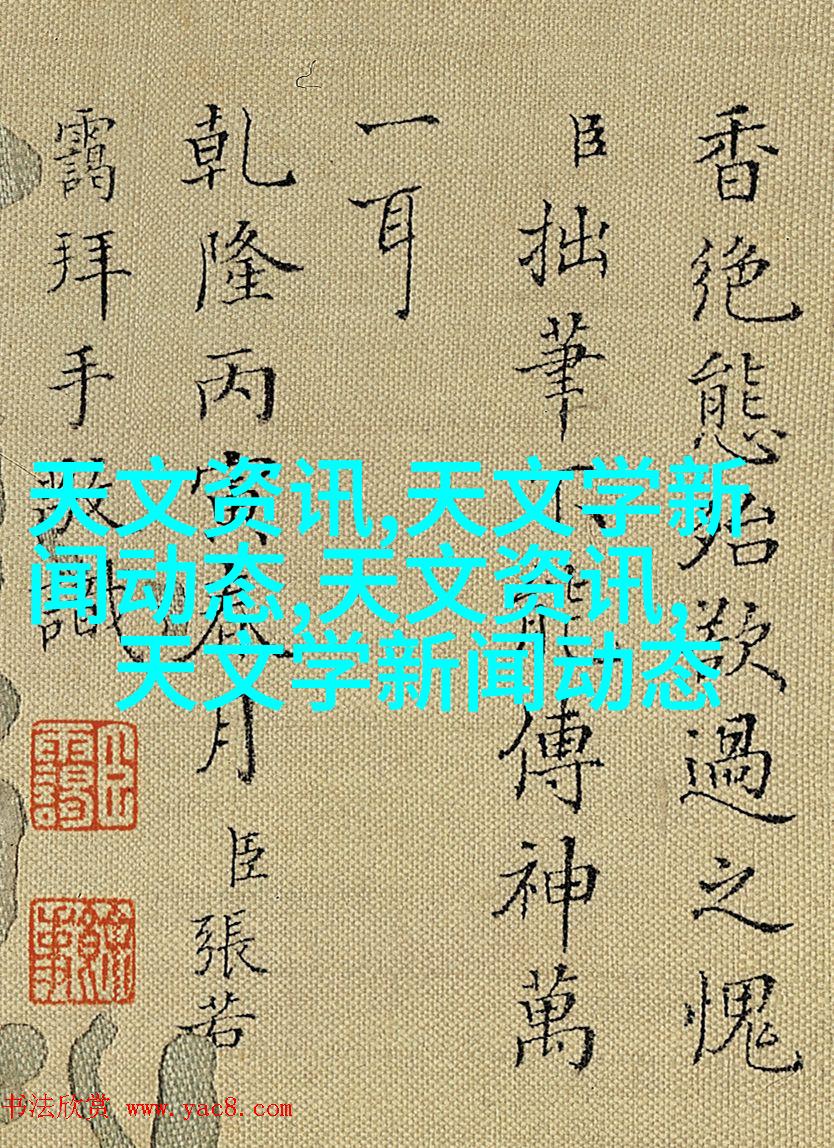 香絶態殆欲過之愧
臣拙筆不能傳神萬
一耳
乾隆丙寅春月臣張若
靄拜手敬識
天文资讯,天文学新
闻动态,天文资讯,
天文学新闻动态
书法欣赏 www.yac8.com